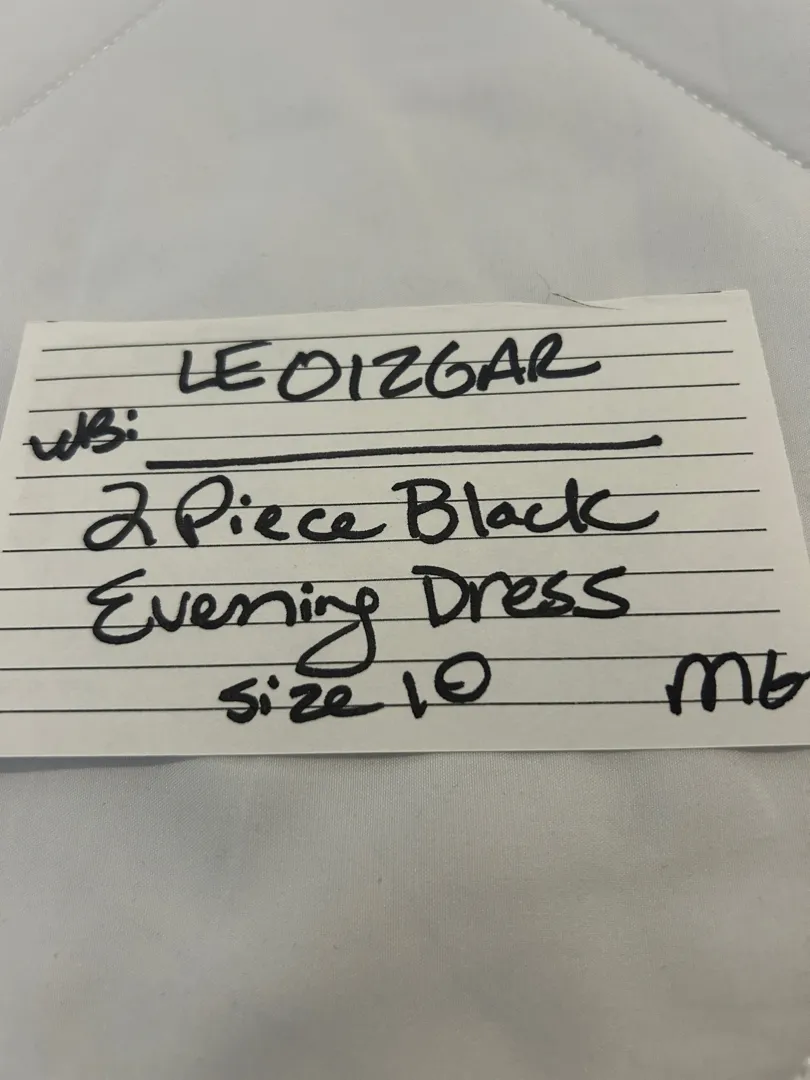 LE0126GAR
WB:
2 Piece Black
Evening Dress
size 10 MG